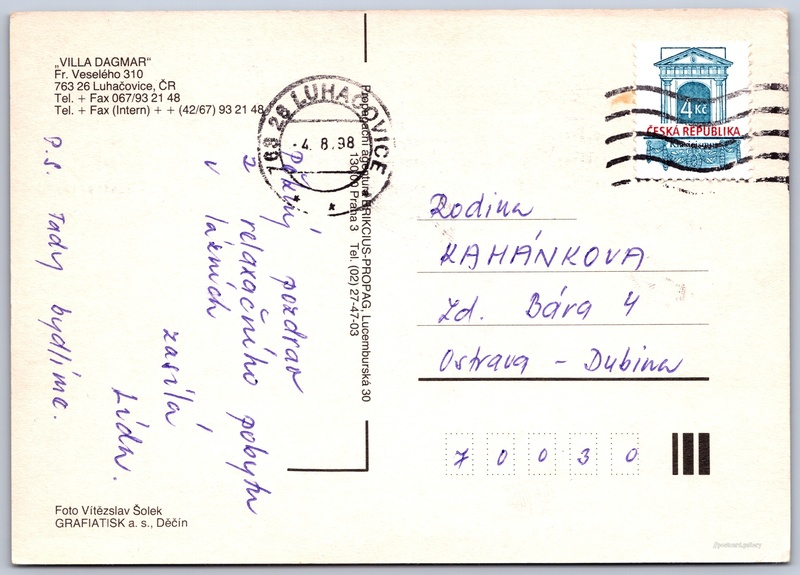 „VILLA DAGMAR“
Fr. Veselého 310
763 26 Luhačovice, ČR
Tel. + Fax 067/93 21 48
Tel. + Fax (Intern) + + (42/67) 93 21 48
763 26 LUHAČOVICE
-4.8.98
Pěkný pozdrav
z relaxačního pobytu
v lázních
zasílá
Lída.
P.S. Tady bydlíme.
Propagační agentura BRIKCIUS-PROPAG, Lucemburská 30
13000 Praha 3 Tel. (02) 27-47-03
4 Kč
ČESKÁ REPUBLIKA
Rodina
KAHÁNKOVA
Zd. Bára 4
Ostrava - Dubina
70030
Foto Vítězslav Šolek
GRAFIATISK a. s., Děčín